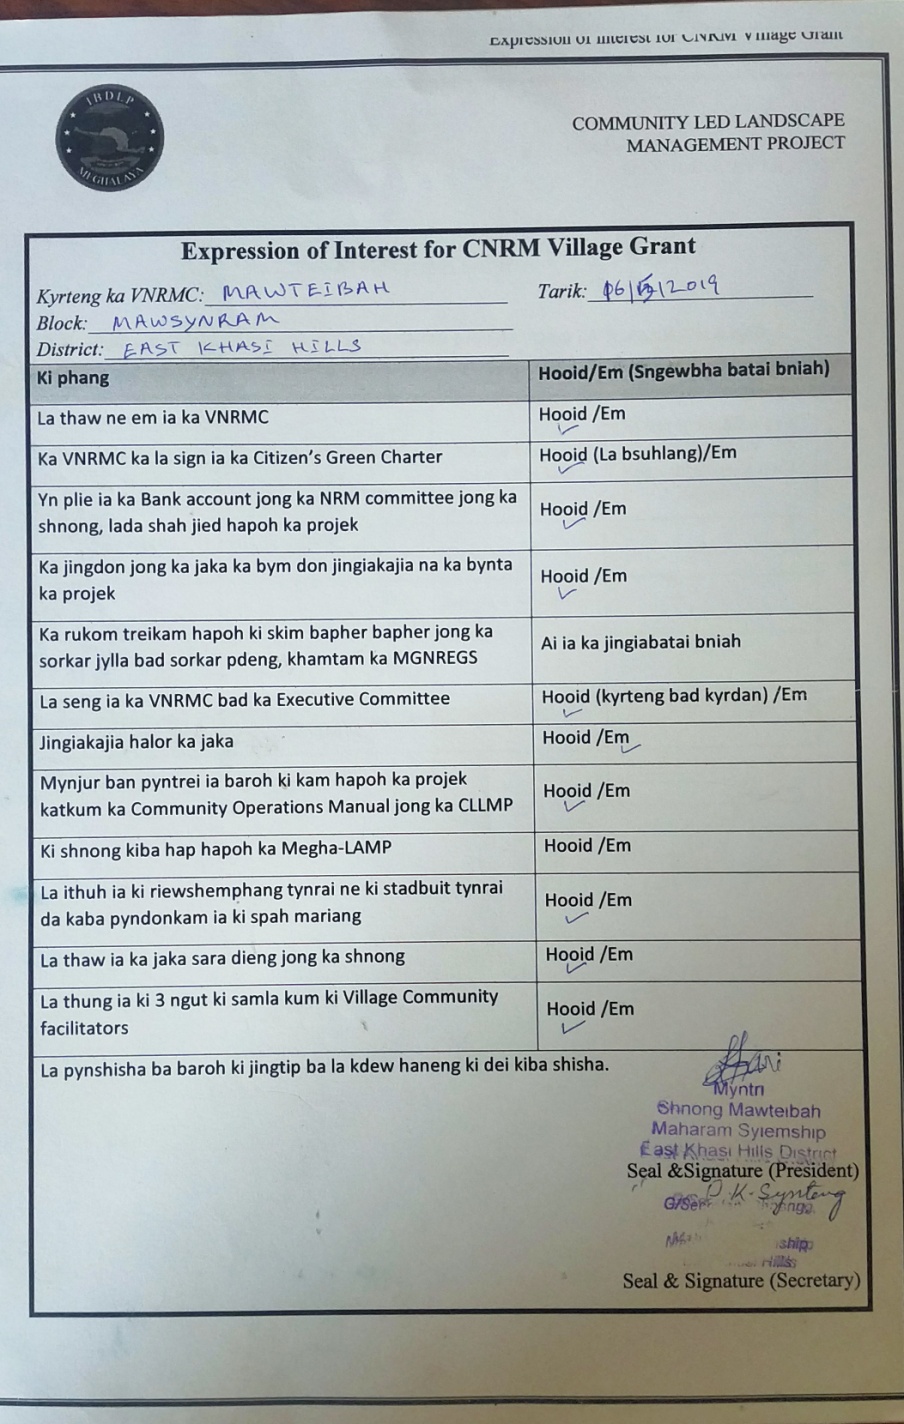 Expression of Interest for CNRM Village Grant
IBDLP
MEGHALAYA
COMMUNITY LED LANDSCAPE
MANAGEMENT PROJECT
Expression of Interest for CNRM Village Grant
Kyrteng ka VNRMC: MAWTEIBAH
Tarik: 06/ /2019
Block: MAWSYNRAM
District: EAST KHASI HILLS
Ki phang
Hooid/Em (Sngewbha batai bniah)
La thaw ne em ia ka VNRMC
Hooid /Em
Ka VNRMC ka la sign ia ka Citizen's Green Charter
Hooid (La bsuhlang)/Em
Yn plie ia ka Bank account jong ka NRM committee jong ka
shnong, lada shah jied hapoh ka projek
Hooid /Em
Ka jingdon jong ka jaka ka bym don jingiakajia na ka bynta
ka projek
Hooid /Em
Ka rukom treikam hapoh ki skim bapher bapher jong ka
sorkar jylla bad sorkar pdeng, khamtam ka MGNREGS
Ai ia ka jingiabatai bniah
La seng ia ka VNRMC bad ka Executive Committee
Hooid (kyrteng bad kyrdan) /Em
Jingiakajia halor ka jaka
Hooid /Em
Mynjur ban pyntrei ia baroh ki kam hapoh ka projek
katkum ka Community Operations Manual jong ka CLLMP
Hooid /Em
Ki shnong kiba hap hapoh ka Megha-LAMP
Hooid /Em
La ithuh ia ki riewshemphang tynrai ne ki stadbuit tynrai
da kaba pyndonkam ia ki spah mariang
Hooid /Em
La thaw ia ka jaka sara dieng jong ka shnong
Hooid /Em
La thung ia ki 3 ngut ki samla kum ki Village Community
facilitators
Hooid /Em
La pynshisha ba baroh ki jingtip ba la kdew haneng ki dei kiba shisha.
Myntri
Shnong Mawteibah
Maharam Syiemship
East Khasi Hills District
Seal &Signature (President)
P.K. Synteng
ship
Hills
Seal & Signature (Secretary)